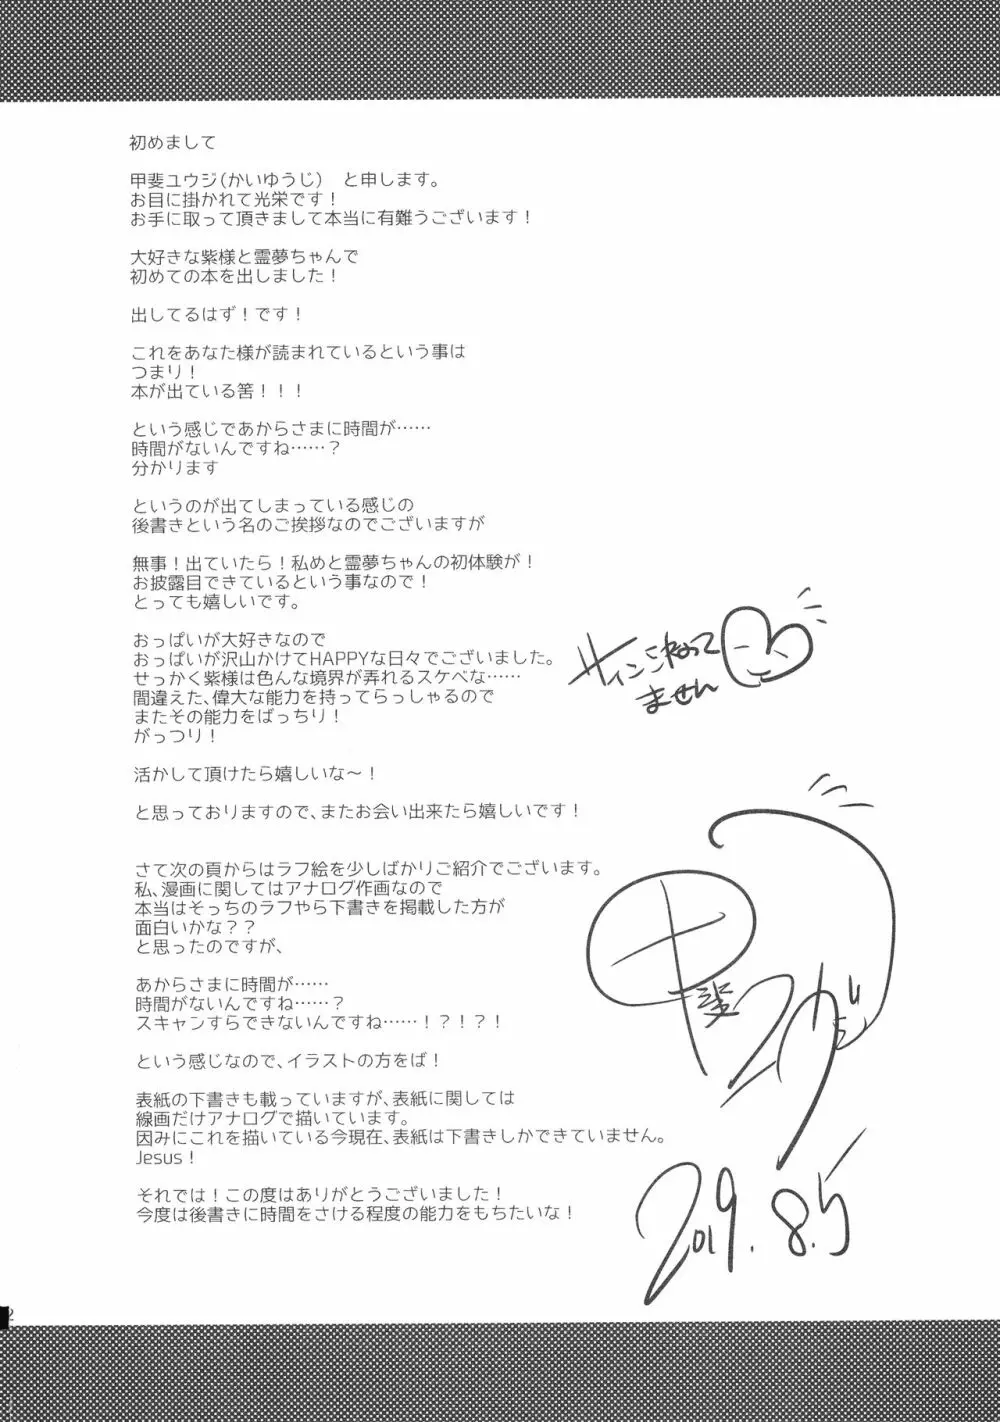 初めまして
甲斐ユウジ(かいゆうじ)　と申します。
お目に掛かれて光栄です!
お手に取って頂きまして本当に有難うございます!
大好きな紫様と霊夢ちゃんで
初めての本を出しました!
出してるはず!です!
これをあなた様が読まれているという事は
つまり!
本が出ている筈!!!
という感じであからさまに時間が……
時間がないんですね……?
分かります
というのが出てしまっている感じの
後書きという名のご挨拶なのでございますが
無事!出ていたら!私めと霊夢ちゃんの初体験が!
お披露目できているという事なので!
とっても嬉しいです。
おっぱいが大好きなので
おっぱいが沢山かけてHAPPYな日々でございました。
せっかく紫様は色んな境界が弄れるスケベな……
間違えた、偉大な能力を持ってらっしゃるので
またその能力をばっちり!
がっつり!
活かして頂けたら嬉しいな～!
と思っておりますので、またお会い出来たら嬉しいです!
さて次の頁からはラフ絵を少しばかりご紹介でございます。
私、漫画に関してはアナログ作画なので
本当はそっちのラフやら下書きを掲載した方が
面白いかな??
と思ったのですが、
あからさまに時間が……
時間がないんですね……?
スキャンすらできないんですね……!?!?!
という感じなので、イラストの方をば!
表紙の下書きも載っていますが、表紙に関しては
線画だけアナログで描いています。
因みにこれを描いている今現在、表紙は下書きしかできていません。
Jesus!
それでは!この度はありがとうございました!
今度は後書きに時間をさける程度の能力をもちたいな!
サインこなって
ません
甲斐ユウジ
2019.8.5
2